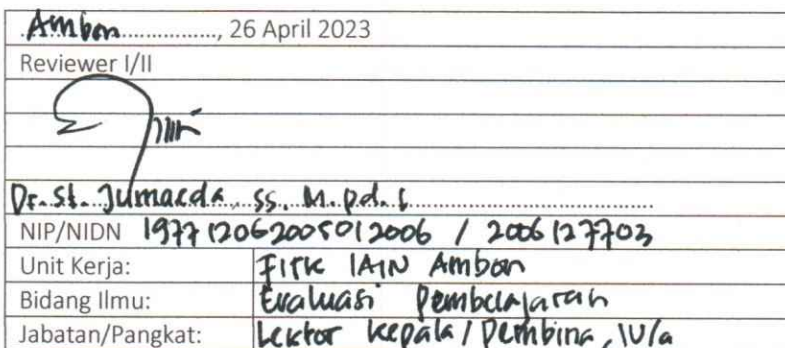 Ambon................, 26 April 2023
Reviewer I/II
Dr. St. Jumaeda, SS, M.Pd.I
NIP/NIDN 197712062005012006 / 2006127703
Unit Kerja: FITK IAIN Ambon
Bidang Ilmu: Evaluasi Pembelajaran
Jabatan/Pangkat: Lektor Kepala / Pembina, IV/a